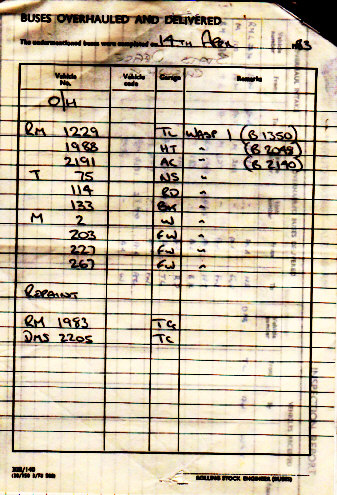 BUSES OVERHAULED AND DELIVERED
The undermentioned buses were completed on 14TH APRIL 1983
Vehicle No. Vehicle code Garage Remarks
O/H
RM 1229 TL WASP 1 (B 1350)
1988 HT " (B 2048)
2191 AC " (B 2140)
T 75 NS "
114 RD "
133 "
M 2 W "
203 FW "
227 FW "
267 FW "
REPAINT
RM 1983 TC
DMS 2205 TC
ROLLING STOCK ENGINEER (BUSES)